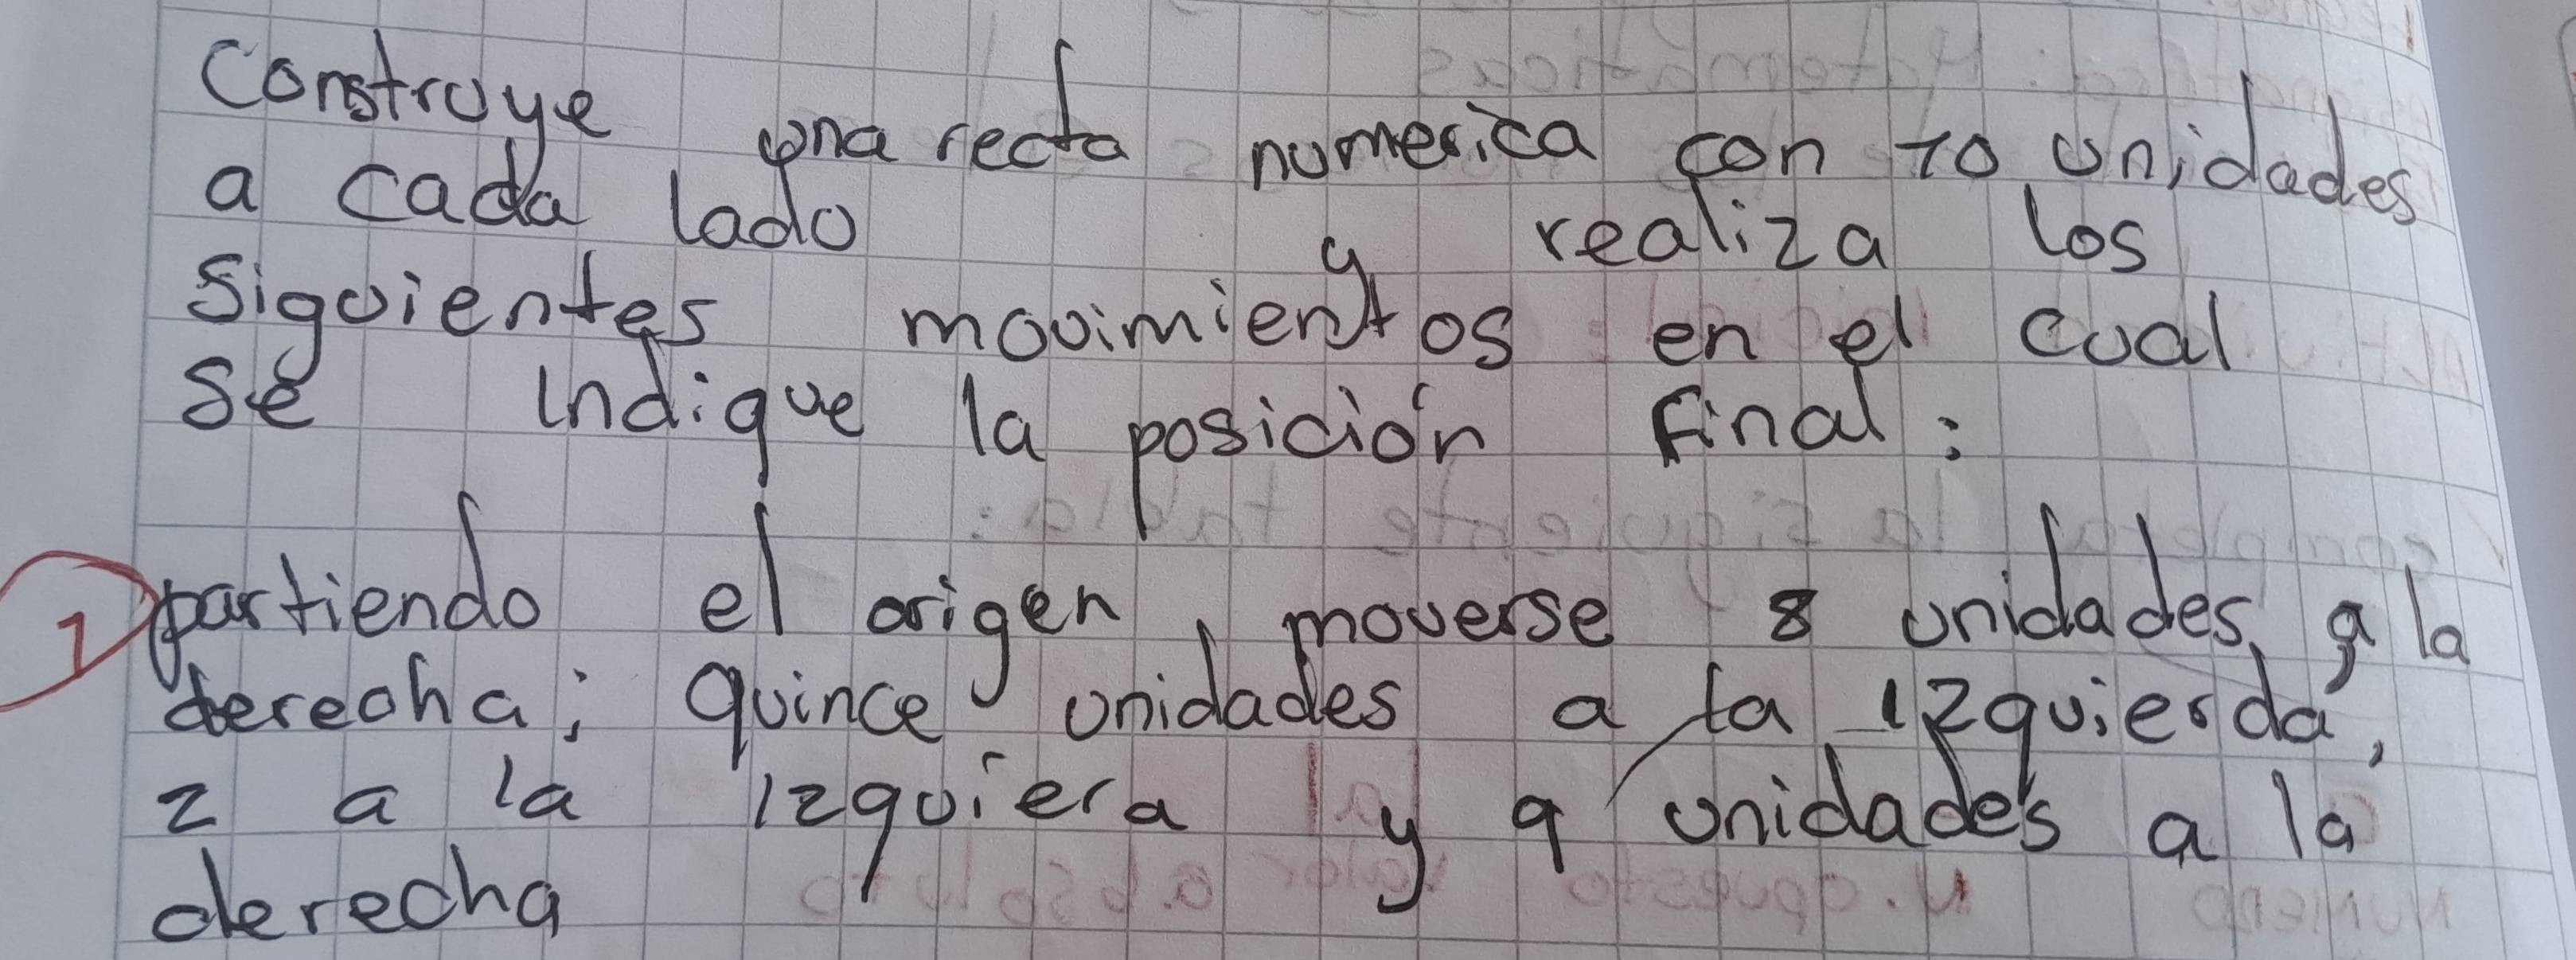 Construye una recta numerica con 10 unidades
a cada lado y realiza los
siguientes movimientos en el cual
se indique la posición final:
1 partiendo el origen, moverse 8 unidades a la
derecha; quince unidades a la izquierda,
2 a la izquiera y 9 unidades a la
derecha